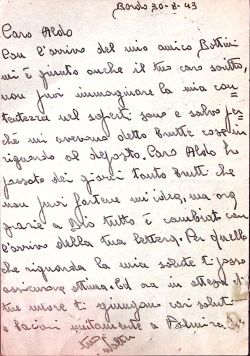 Bordo 20-8-43
Caro Aldo
Con l'arrivo del mio amico Bettini
mi è giunto anche il tuo caro scritto,
non puoi immaginare la mia con
tentezza nel saperti sano e salvo per
ché mi avevano detto brutte cose in
riguardo al deposto. Caro Aldo ho
passato dei giorni tanto brutti che
non puoi fartene mi idea, ma ora
grazie a Dio tutto è cambiato con
l'arrivo della tua lettera. Per quello
che riguarda la mia salute ti posso
assicurare ottima. Ed ora in attesa di
tue nuove ti giungano cari saluti
e bacioni unitamente a
tuo